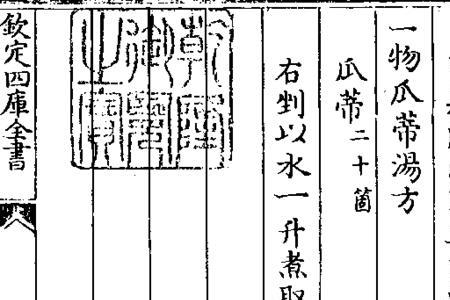 一物瓜蒂湯方
瓜蒂二十箇
右剉以水一升煮取
欽定四庫全書